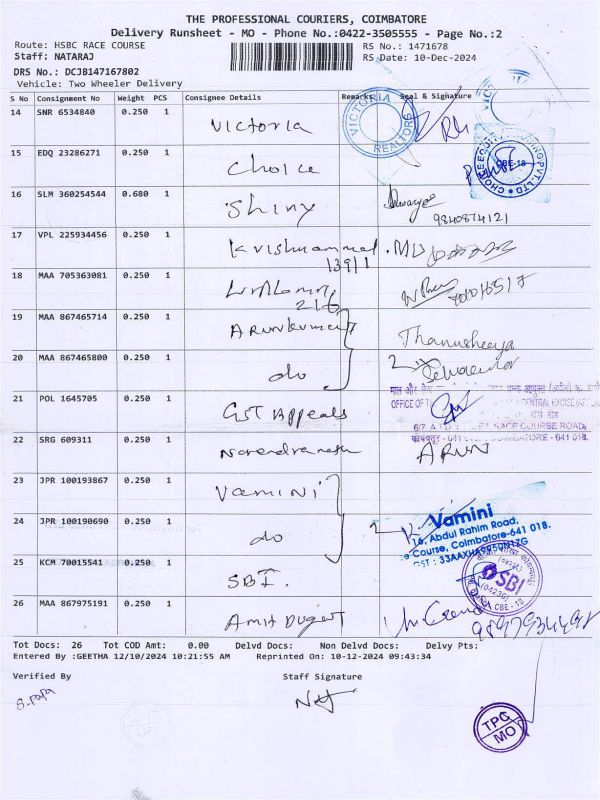 THE PROFESSIONAL COURIERS, COIMBATORE
Delivery Runsheet - MO - Phone No.:0422-3505555 - Page No.:2
Route: HSBC RACE COURSE RS No.: 1471678
Staff: NATARAJ RS Date: 10-Dec-2024
DRS No.: DCJB147167802
Vehicle: Two Wheeler Delivery
S No Consignment No Weight PCS Consignee Details Remarks Seal & Signature
14 SNR 6534840 0.250 1 Victoria
VICTORIA REALTORS
15 EDQ 23286271 0.250 1 Choice
CHOICE EQUITY BROKING PVT. LTD CBE-18
16 SLM 360254544 0.680 1 Shiny
9840874121
17 VPL 225934456 0.250 1 Krishnammal
139/1
18 MAA 705363081 0.250 1
216
19 MAA 867465714 0.250 1 Arunkumar Thanusheeya
20 MAA 867465800 0.250 1 do 2 Selvakumar
21 POL 1645705 0.250 1 GST Appeals
OFFICE OF T CENTRAL EXCISE
6/7, A.T.D. STREET, RACE COURSE ROAD,
COIMBATORE - 641 018.
22 SRG 609311 0.250 1 Narendranath ARUN
23 JPR 100193867 0.250 1 Vamini
24 JPR 100190690 0.250 1 do 2
Vamini
16, Abdul Rahim Road,
e Course, Coimbatore-641 018.
25 KCM 70015541 0.250 1 SBI.
SBI (04230) CBE - 18
26 MAA 867975191 0.250 1 Amit Dugert
Tot Docs: 26 Tot COD Amt: 0.00 Delvd Docs: Non Delvd Docs: Delvy Pts:
Entered By :GEETHA 12/10/2024 10:21:55 AM Reprinted On: 10-12-2024 09:43:34
Verified By Staff Signature
TPC
MO